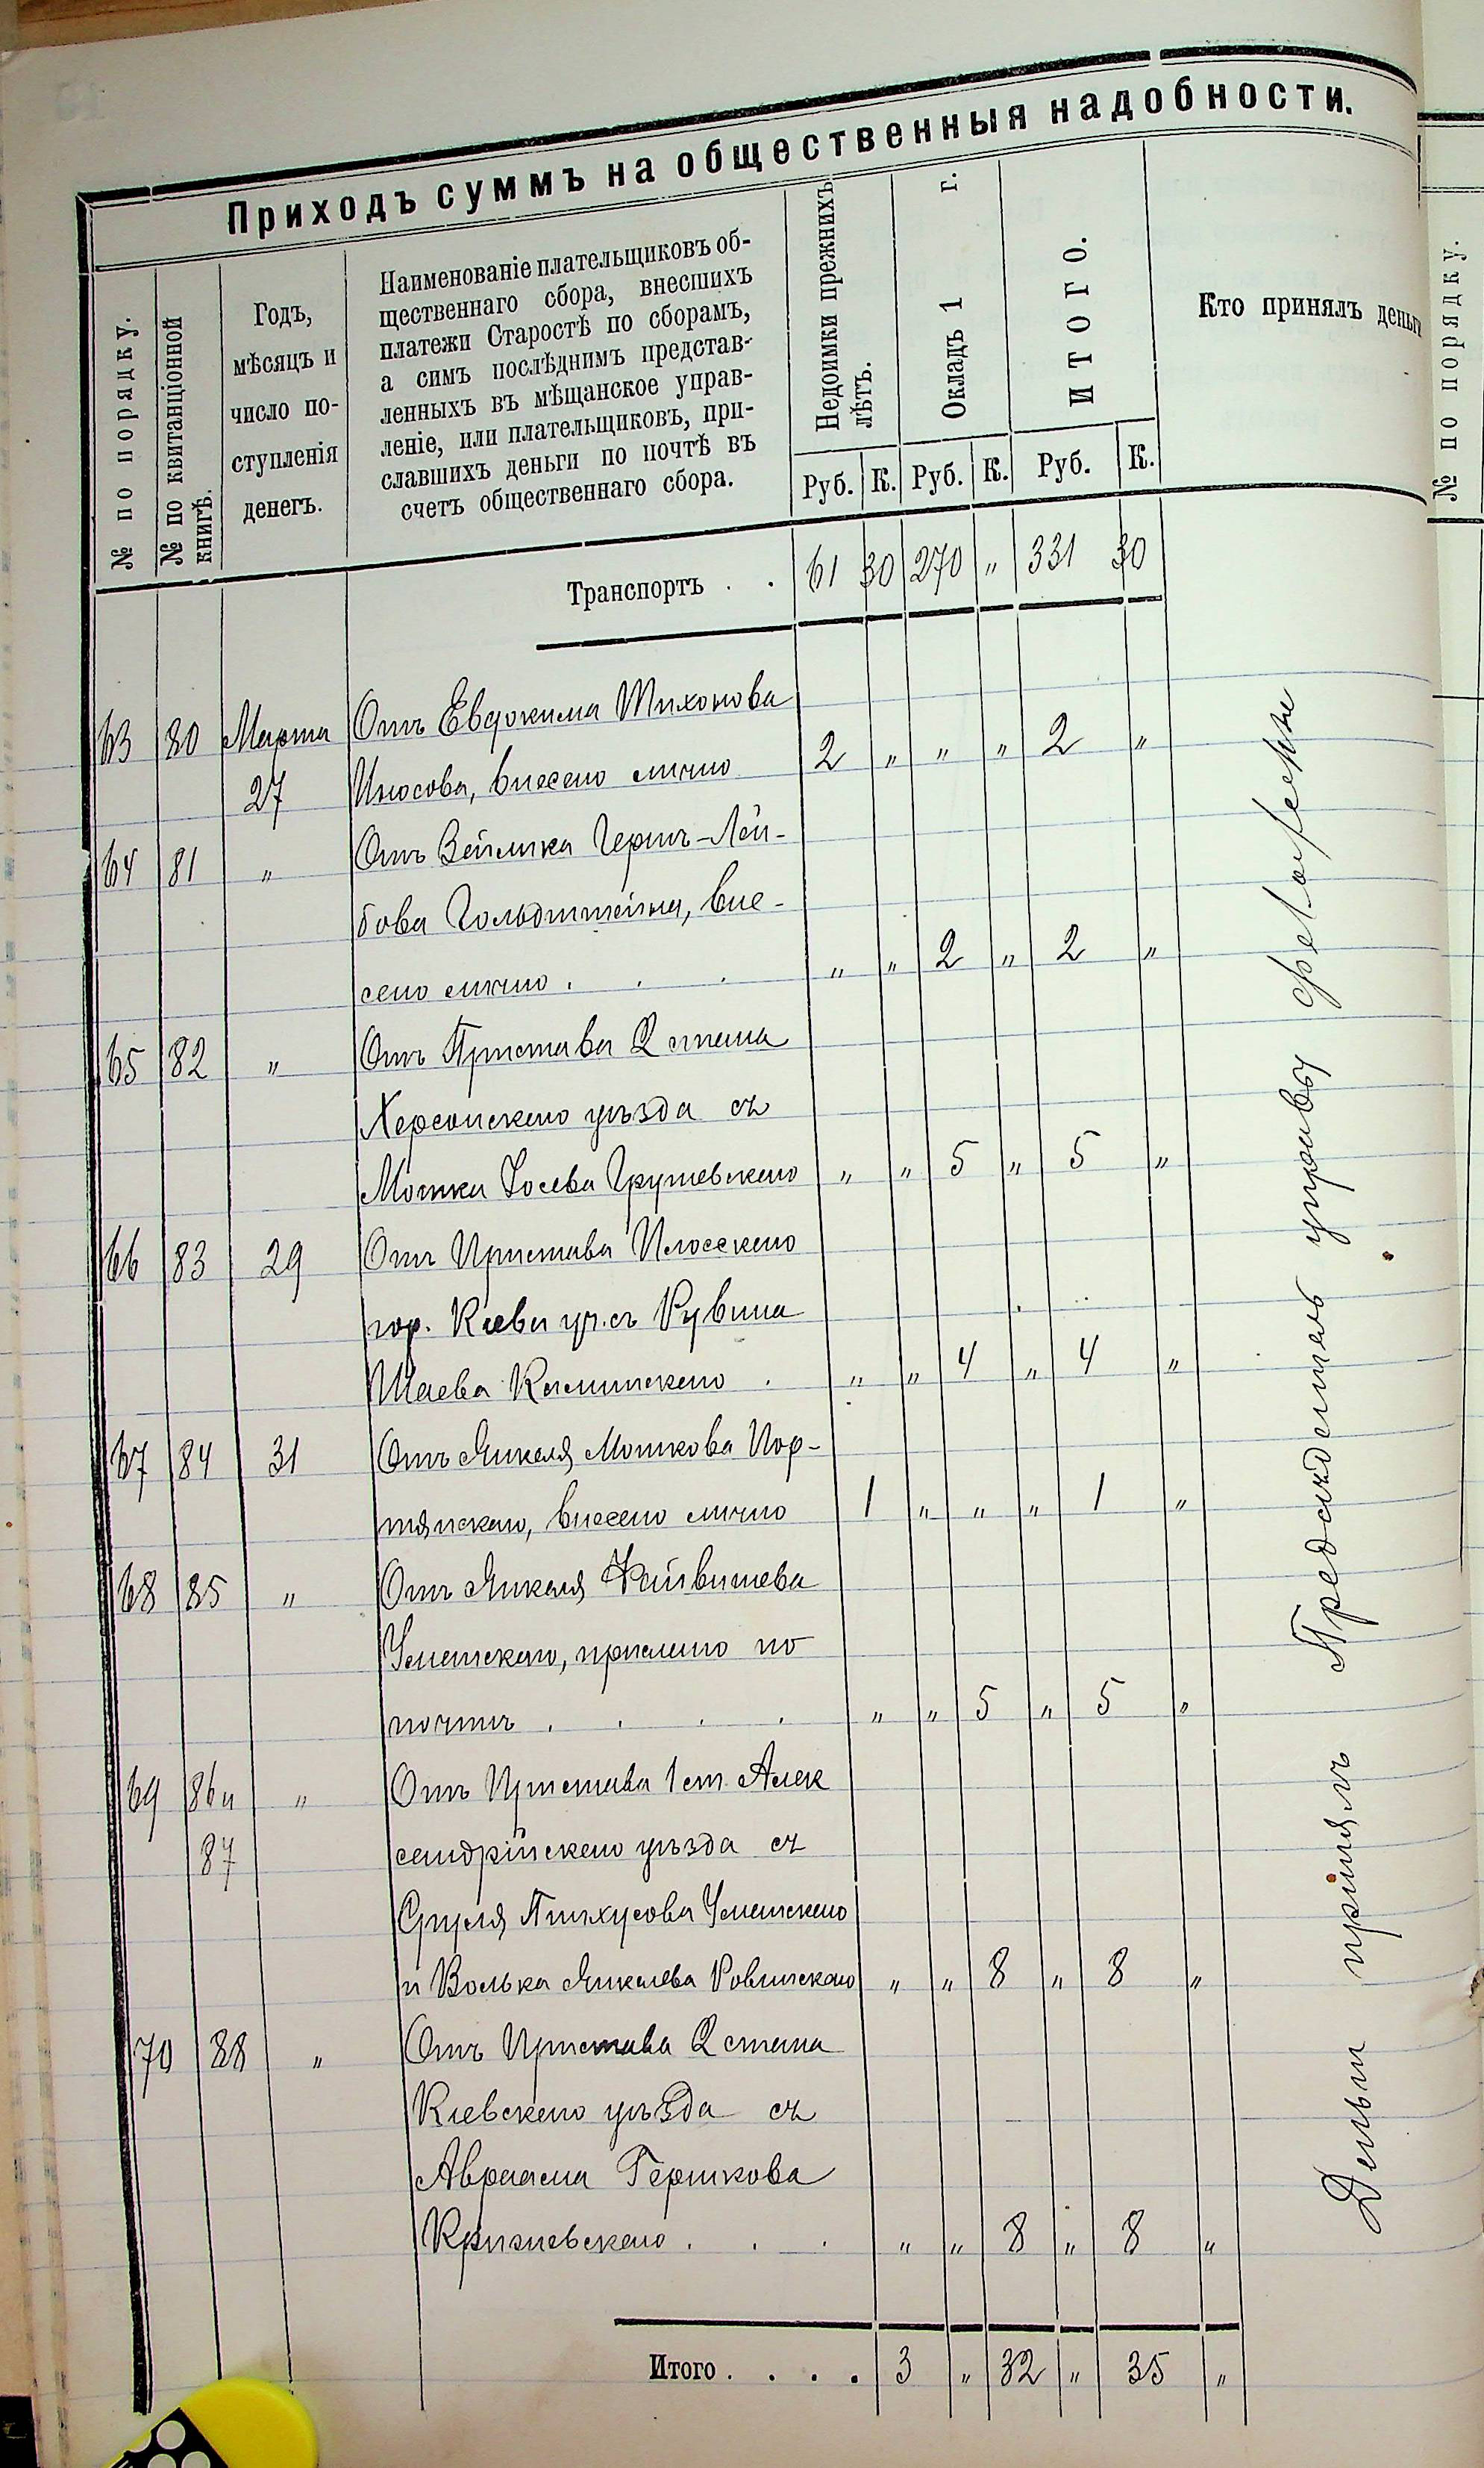 Приходъ суммъ на общественныя надобности.
№ по порядку.
№ по квитанціонной
книгѣ.
Годъ,
мѣсяцъ и
число по-
ступленія
денегъ.
Наименованіе плательщиковъ об-
щественнаго сбора, внесшихъ
платежи Старостѣ по сборамъ,
а симъ послѣднимъ представ-
ленныхъ въ мѣщанское управ-
леніе, или плательщиковъ, при-
славшихъ деньги по почтѣ въ
счетъ общественнаго сбора.
Недоимки прежнихъ
лѣтъ.
Окладъ 1 г.
ИТОГО.
Кто принялъ деньги
Руб. К. Руб. К. Руб. К.
Транспортъ . . 61 30 270 „ 331 30
63 80 Марта Отъ Евдокима Тихонова
27 внесено лично 2 „ „ „ 2 „
64 81 „ Отъ Зейлика Герш-Лей-
бова Гольдштейна, вне-
сено лично . . . „ „ 2 „ 2 „
65 82 „ Отъ Пристава 2 стана
Херсонскаго уѣзда съ
Мошка Іосева Грушевскаго „ „ 5 „ 5 „
66 83 29 Отъ Пристава Плосскаго
гор. Кіева уч. съ Рувина
Шаева Каминскаго . „ „ 4 „ 4 „
67 84 31 Отъ Янкеля Мошкова Пор-
тянскаго, внесено лично 1 „ „ „ 1 „
68 85 „ Отъ Янкеля Файвишева
Уманскаго, прислано по
почтѣ . . . . „ „ 5 „ 5 „
69 86 и „ Отъ Пристава 1 ст. Алек
87 сандрійскаго уѣзда съ
Сруля Пинхусова Уманскаго
и Волька Янкелева Ровинскаго „ „ 8 „ 8 „
70 88 „ Отъ Пристава 2 стана
Кіевскаго уѣзда съ
Авраама Гершкова
Кризневскаго . . . „ „ 8 „ 8 „
Итого . . . . 3 „ 32 „ 35 „
Деньги принялъ Предсѣдатель управы
№ по порядку.